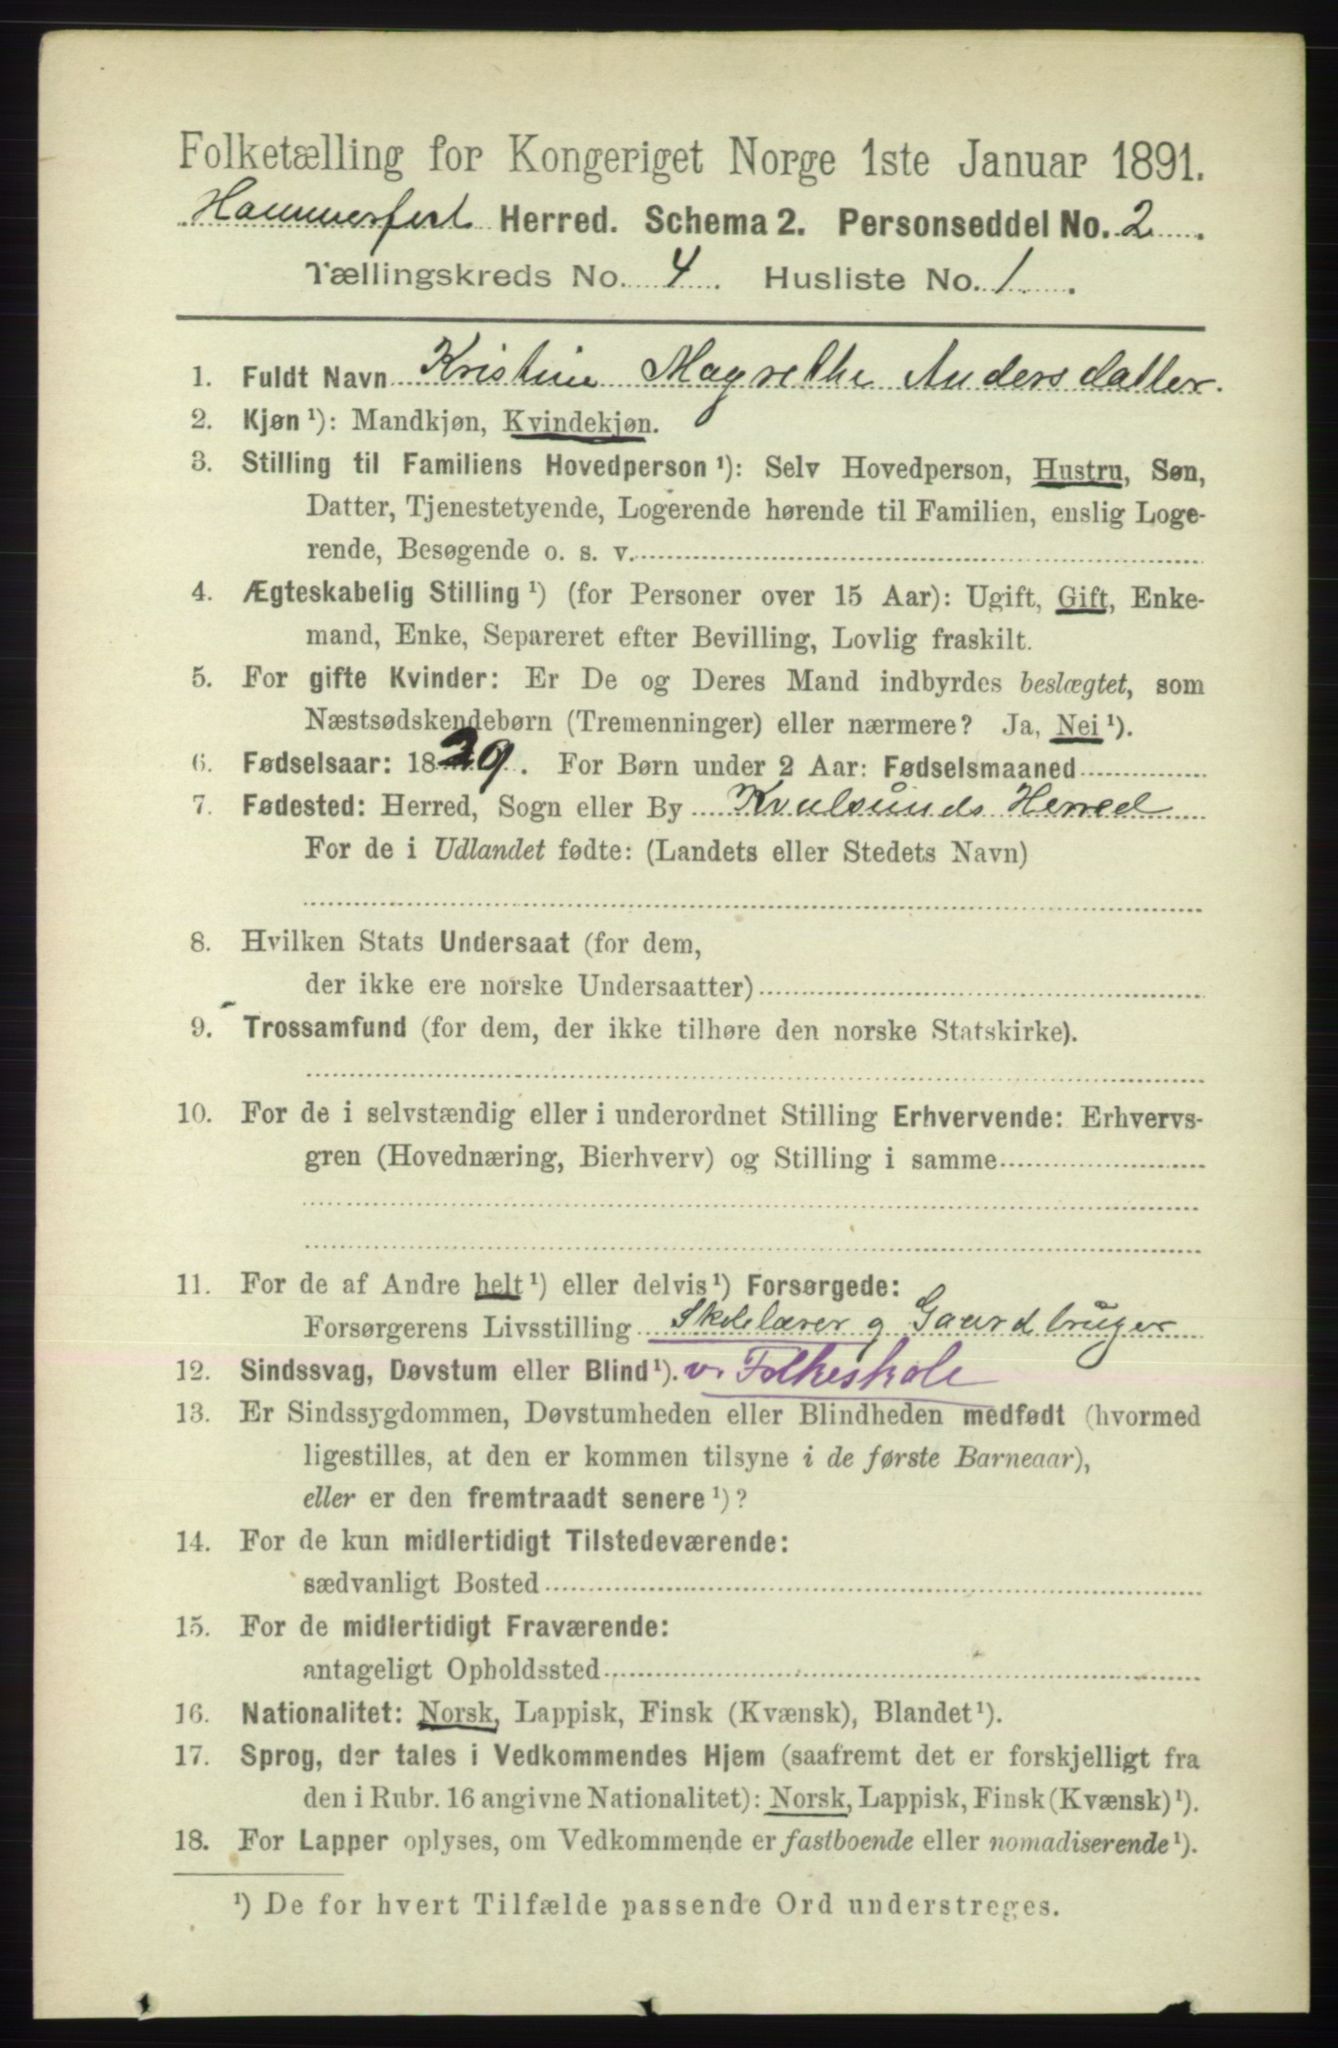 Folketælling for Kongeriget Norge 1ste Januar 1891.
Hammerfest Herred. Schema 2. Personseddel No. 2
Tællingskreds No. 4. Husliste No. 1.
1. Fuldt Navn Kristine Magrethe Andersdatter.
2. Kjøn ¹): Mandkjøn, Kvindekjøn.
3. Stilling til Familiens Hovedperson ¹): Selv Hovedperson, Hustru, Søn,
Datter, Tjenestetyende, Logerende hørende til Familien, enslig Loge-
rende, Besøgende o. s. v.
4. Ægteskabelig Stilling ¹) (for Personer over 15 Aar): Ugift, Gift, Enke-
mand, Enke, Separeret efter Bevilling, Lovlig fraskilt.
5. For gifte Kvinder: Er De og Deres Mand indbyrdes beslægtet, som
Næstsødskendebørn (Tremenninger) eller nærmere? Ja, Nei ¹).
6. Fødselsaar: 1829. For Børn under 2 Aar: Fødselsmaaned
7. Fødested: Herred, Sogn eller By Kvalsunds Herred
For de i Udlandet fødte: (Landets eller Stedets Navn)
8. Hvilken Stats Undersaat (for dem,
der ikke ere norske Undersaatter)
9. Trossamfund (for dem, der ikke tilhøre den norske Statskirke).
10. For de i selvstændig eller i underordnet Stilling Erhvervende: Erhvervs-
gren (Hovednæring, Bierhverv) og Stilling i samme
11. For de af Andre helt ¹) eller delvis ¹) Forsørgede:
Forsørgerens Livsstilling Skolelærer g Gaardbruger
12. Sindssvag, Døvstum eller Blind ¹). v. Folkeskole
13. Er Sindssygdommen, Døvstumheden eller Blindheden medfødt (hvormed
ligestilles, at den er kommen tilsyne i de første Barneaar),
eller er den fremtraadt senere ¹)?
14. For de kun midlertidigt Tilstedeværende:
sædvanligt Bosted
15. For de midlertidigt Fraværende:
antageligt Opholdssted
16. Nationalitet: Norsk, Lappisk, Finsk (Kvænsk), Blandet ¹).
17. Sprog, der tales i Vedkommendes Hjem (saafremt det er forskjelligt fra
den i Rubr. 16 angivne Nationalitet): Norsk, Lappisk, Finsk (Kvænsk) ¹).
18. For Lapper oplyses, om Vedkommende er fastboende eller nomadiserende ¹).
¹) De for hvert Tilfælde passende Ord understreges.